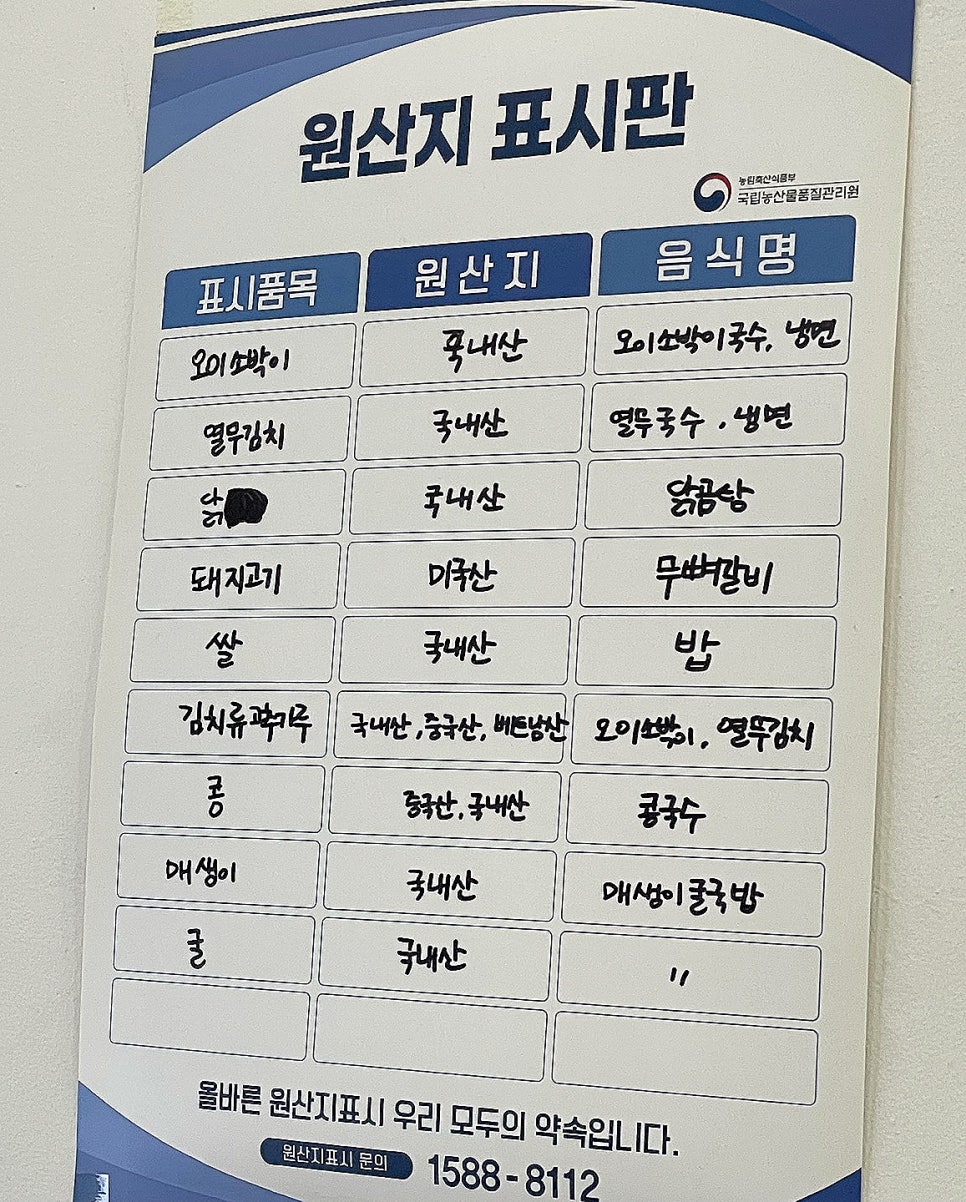 원산지 표시판
농림축산식품부
국립농산물품질관리원
표시품목 원산지 음식명
오이소박이 국내산 오이소박이국수, 냉면
열무김치 국내산 열무국수, 냉면
닭 국내산 닭곰탕
돼지고기 미국산 무뼈갈비
쌀 국내산 밥
김치류 고춧가루 국내산, 중국산, 베트남산 오이소박이, 열무김치
콩 중국산, 국내산 콩국수
매생이 국내산 매생이굴국밥
굴 국내산 〃
올바른 원산지표시 우리 모두의 약속입니다.
원산지표시 문의 1588-8112